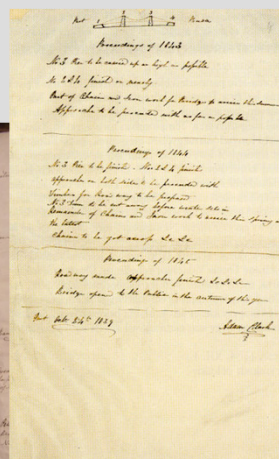 Pest Buda
Proceedings of 1843
No 3 Pier to be carried up as high as possible
No 2 & 4 finish or nearly
Part of Chains and Iron work for Bridge to arrive this
Approaches to be proceeded with as far as possible
Proceedings of 1844
No 3 Pier to be finish. Nos 2 & 4 finish
approaches on both sides to be proceeded with
Timber for Roadway to be prepared
No 3 Dam to be cut away before winter sets in
Remainder of Chains and Iron work to arrive this Spring
the latest
Chains to be got across &c &c
Proceedings of 1845
Roadway made Approaches finish &c &c &c
Bridge open to the Public in the autumn of this year
Pest 24th 1839
Adam Clark